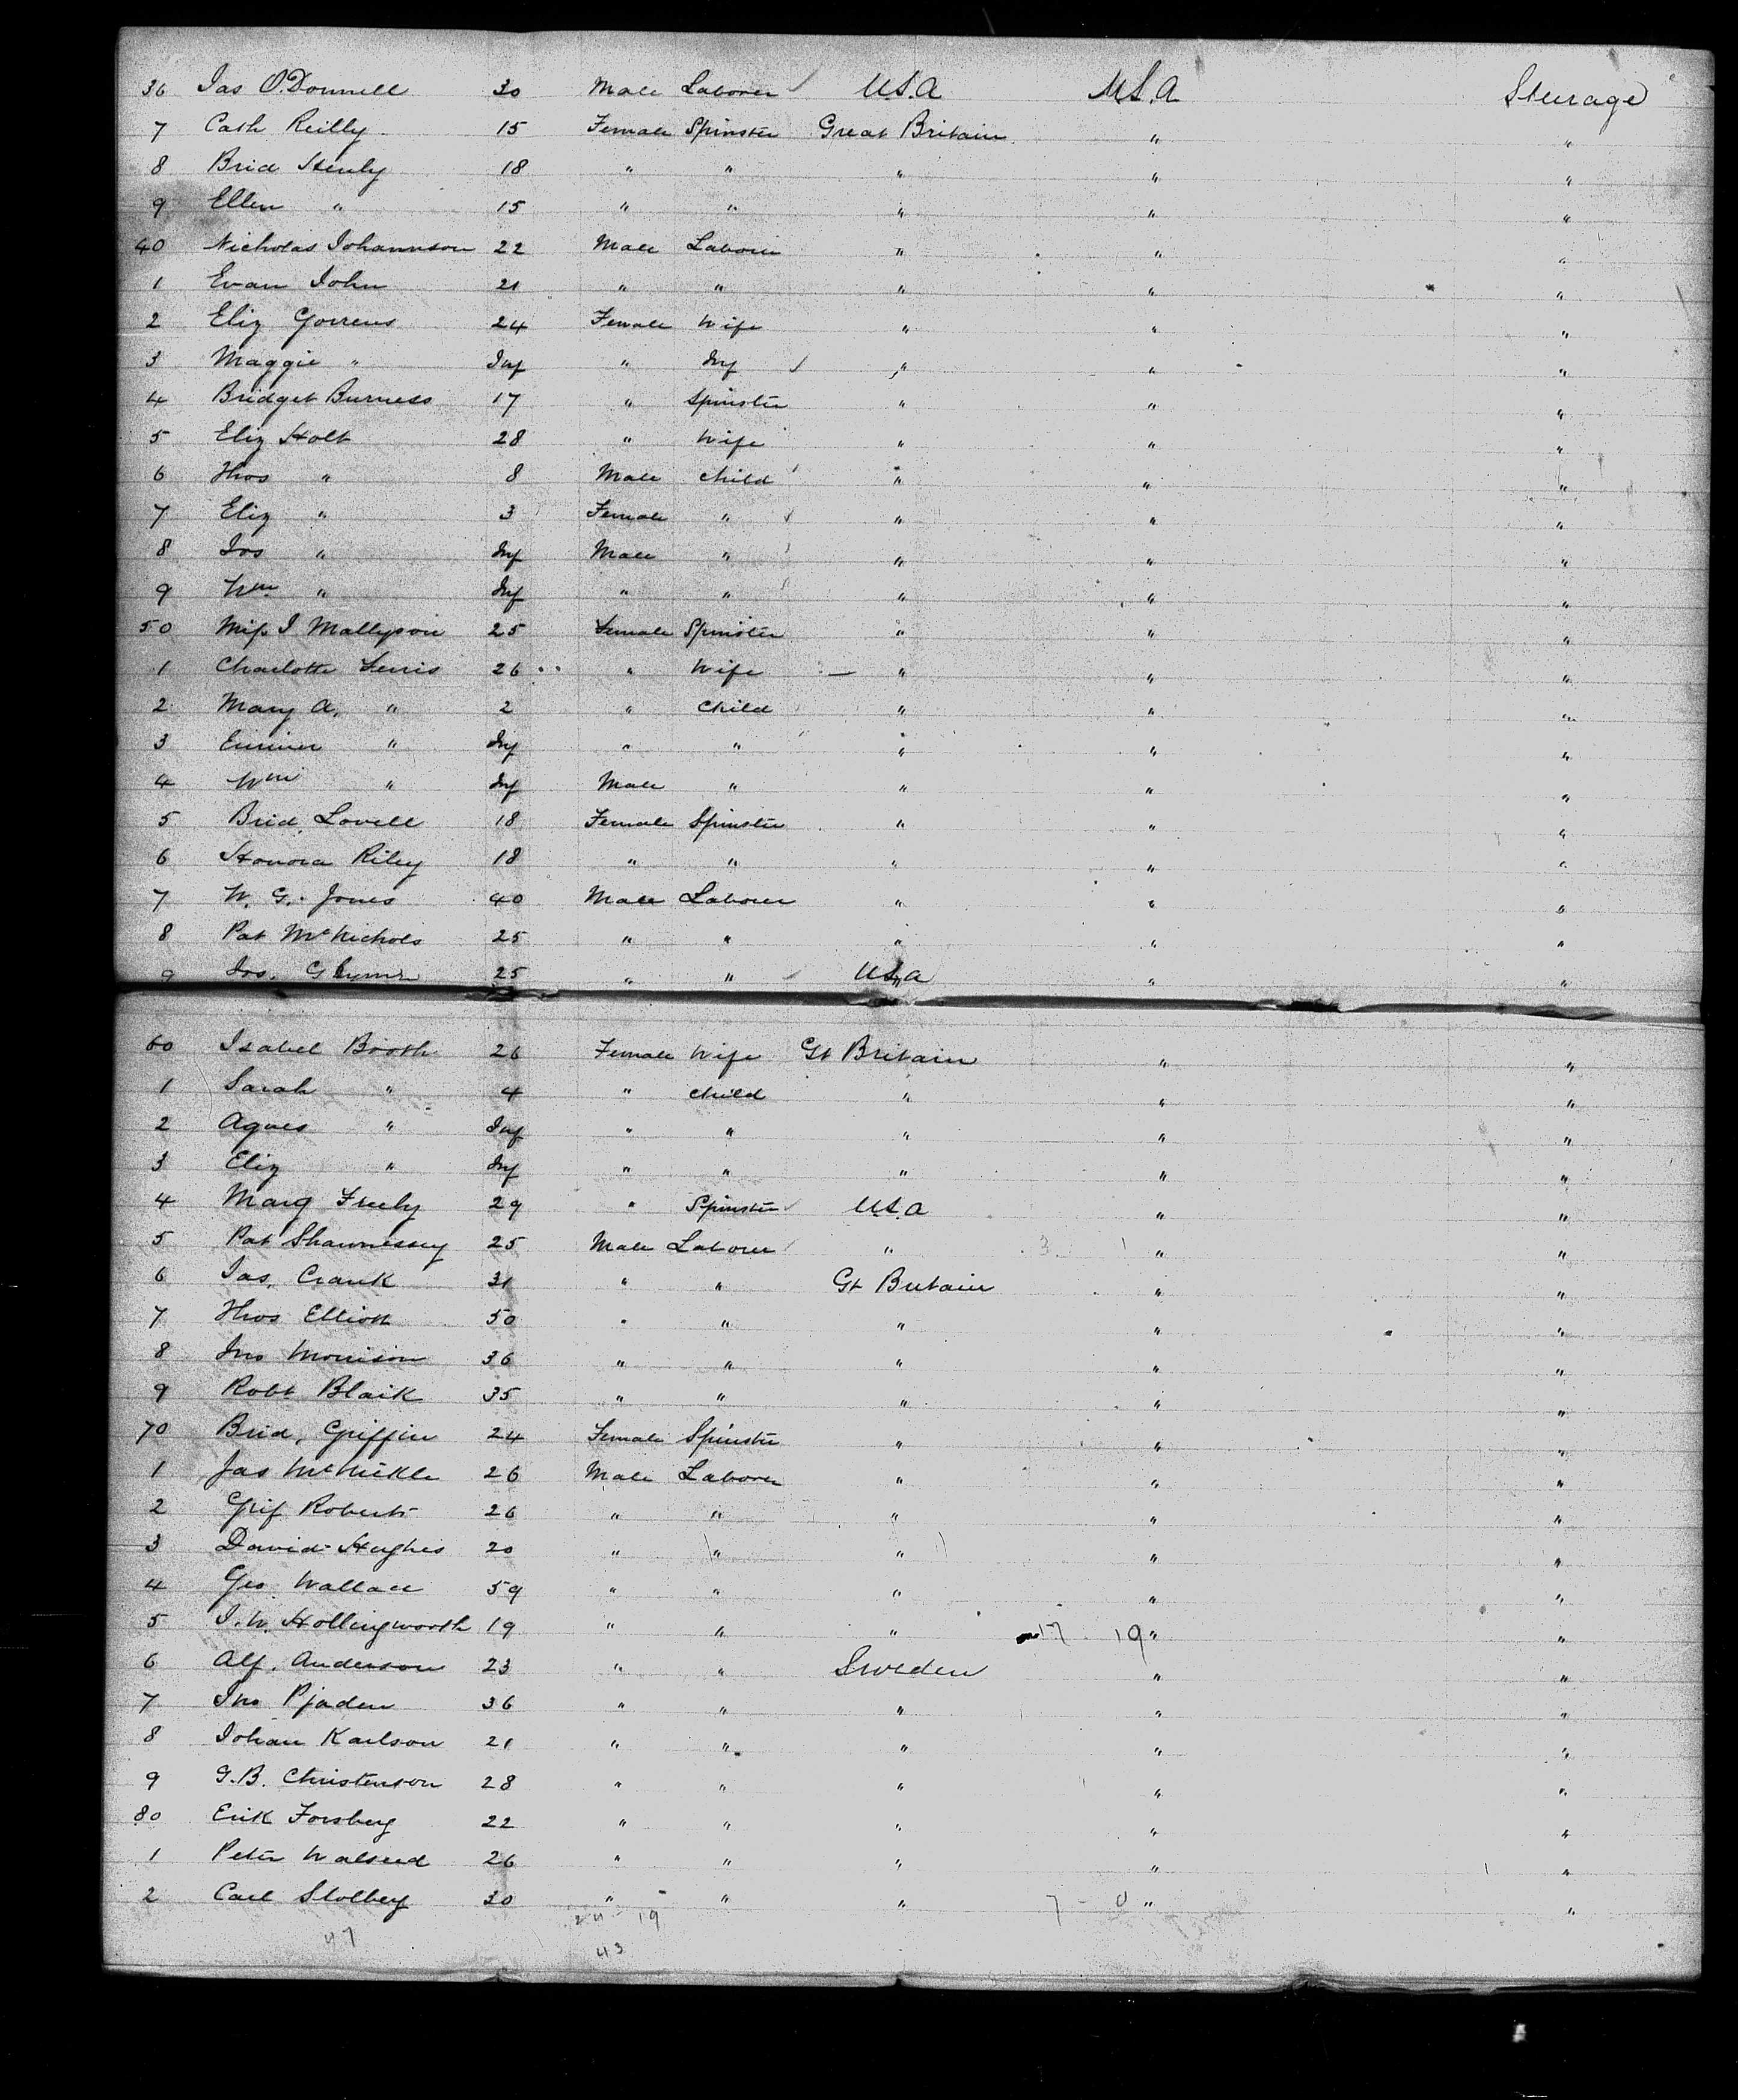 36 Jas O'Donnell 30 Male Laborer U.S.A U.S.A Steurage
7 Cath Reilly 15 Female Spinster Great Britain " "
8 Brid Henly 18 " " " " "
9 Ellen " 15 " " " " "
40 Nicholas Johannson 22 Male Laborer " " "
1 Evan John 21 " " " " "
2 Eliz 24 Female Wife " " "
3 Maggie " Inf " Inf " " "
4 Bridget Burness 17 " Spinster " " "
5 Eliz Holt 28 " Wife " " "
6 Thos " 8 Male Child " " "
7 Eliz " 3 Female " " " "
8 Jos " Inf Male " " " "
9 Wm " Inf " " " " "
50 Miss I Mallyson 25 Female Spinster " " "
1 Charlotte Ferris 26 " Wife " " "
2 Mary A. " 2 " Child " " "
3 " Inf " " " " "
4 Wm " Inf Male " " " "
5 Brid. Lovell 18 Female Spinster " " "
6 Honora Riley 18 " " " " "
7 W. G. Jones 40 Male Laborer " " "
8 Pat McNichols 25 " " " " "
9 Jos. 25 " " U.S.A " "
60 Isabel Booth 26 Female Wife Gt Britain " "
1 Sarah " 4 " Child " " "
2 Agnes " Inf " " " " "
3 Eliz " Inf " " " " "
4 Marg Freely 29 " Spinster U.S.A " "
5 Pat Shannessey 25 Male Laborer " 3 1 " "
6 Jas. Crank 31 " " Gt Britain " "
7 Thos Elliott 50 " " " " "
8 Jno Morrison 36 " " " " "
9 Robt Blaik 35 " " " " "
70 Brid, Griffin 24 Female Spinster " " "
1 Jas McNickle 26 Male Laborer " " "
2 Grif Roberts 26 " " " " "
3 David Hughes 20 " " " " "
4 Geo Wallace 59 " " " " "
5 J. W. Hollingworth 19 " " " 17 19 " "
6 Alf. Anderson 23 " " Sweden " "
7 Jno Pjaden 36 " " " " "
8 Johan Karlson 21 " " " " "
9 G.B. Christenson 28 " " " " "
80 Erik Forsberg 22 " " " " "
1 Peter Walseed 26 " " " " "
2 Carl Stolberg 30 " " " 7 - 0 " "
24 19
47 43